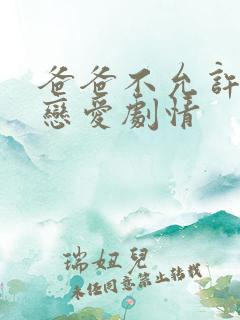 爸爸不允許
戀愛劇情
瑞妞兒
未經同意禁止轉載